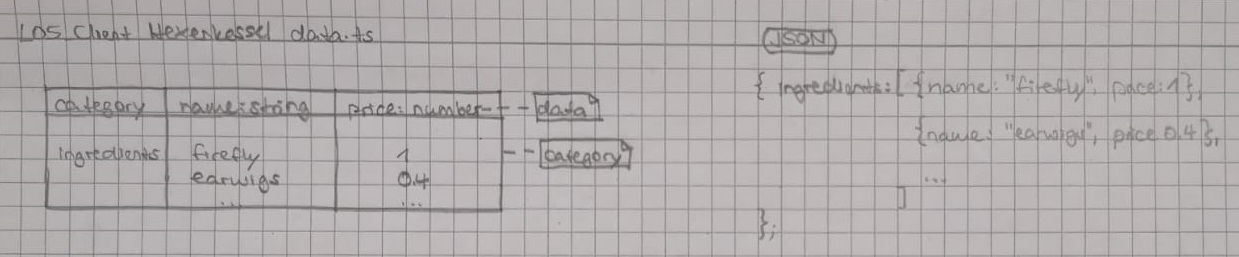 L05 Client Hexenkessel data.ts
category name:string price:number data
ingredients firefly 1 category
earwigs 0.4
... ...
JSON
{ ingredients: [ {name: "firefly", price:1},
{name: "earwigs", price 0.4},
...
]
};